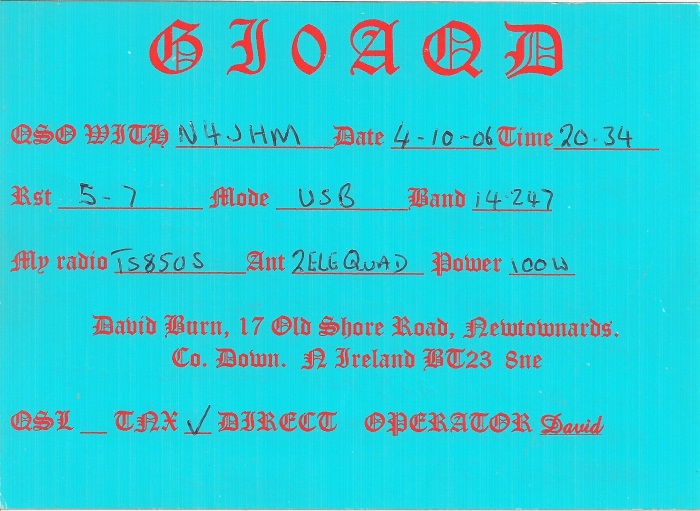 GI0AQD
QSO WITH N4JHM Date 4-10-06 Time 20.34
Rst 5-7 Mode USB Band 14.247
My radio TS850S Ant 2ELE QUAD Power 100W
David Burn, 17 Old Shore Road, Newtownards.
Co. Down. N Ireland BT23 8ne
QSL __ TNX ✓ DIRECT OPERATOR David